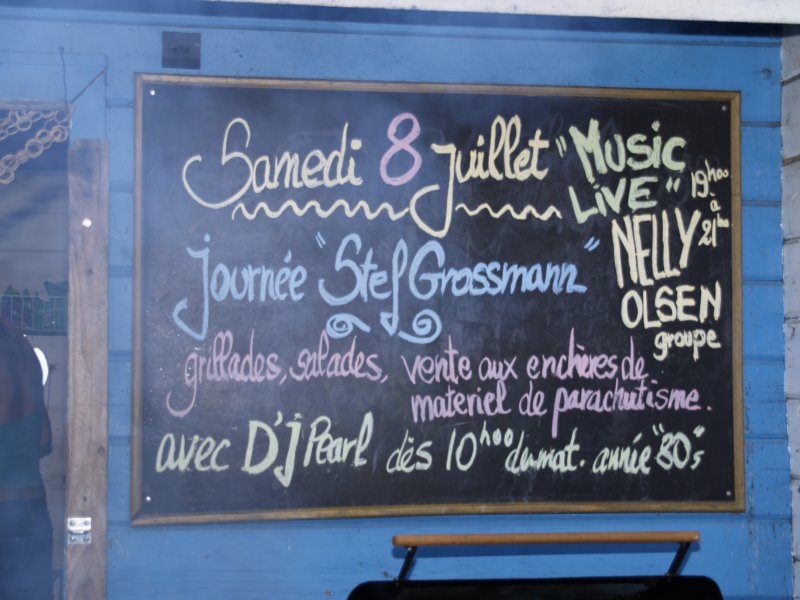 Samedi 8 Juillet
"MUSIC LIVE"
19h00
à
21h00
NELLY
OLSEN
groupe
Journée "Stef Grossmann"
grillades, salades, vente aux enchères de
materiel de parachutisme.
avec D'j Pearl dès 10h00 du mat. annie "80's"